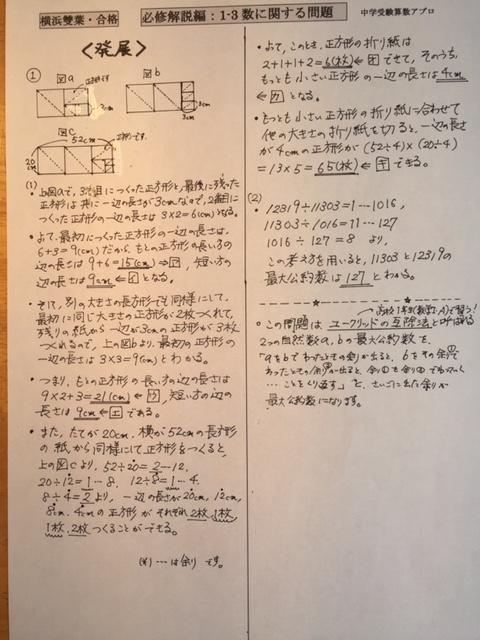 横浜雙葉・合格
必修解説編：1-3 数に関する問題
中学受験算数アプロ
〈発展〉
①
図a
3cm
図b
3cm
3cm
図c
52cm
20cm
(1)
・上図aで、3番目につくった正方形と、最後に残った
正方形は共に一辺の長さが3cmなので、2番目に
つくった正方形の一辺の長さは 3×2=6(cm)となる。
・よって、最初につくった正方形の一辺は、
6+3=9(cm)だから、もとの長方形の長い方の
辺の長さは 9+6=15(cm)⇒ア、短い方の
辺の長さは 9cm ⇐イ となる。
・そして、別の大きさの長方形でも同様にして、
最初に同じ大きさの正方形が2枚つくれて、
残りの紙から一辺が3cmの正方形が3枚
つくれるので、上図bより、最初の正方形の
一辺の長さは 3×3=9(cm)とわかる。
・つまり、もとの長方形の長い方の辺の長さは
9×2+3=21(cm)⇐ウ、短い方の辺の
長さは 9cm ⇐エ である。
・また、たてが20cm、横が52cmの長方形
の紙から同様にして正方形をつくると、
上の図cより、52÷20=2…12、
20÷12=1…8、12÷8=1…4、
8÷4=2より、一辺の長さが20cm、12cm、
8cm、4cmの正方形がそれぞれ2枚、1枚、
1枚、2枚つくることができる。
(※)…は余りです。
・よって、このとき、正方形の折り紙は
2+1+1+2=6(枚)⇐オ できて、そのうち、
もっとも小さい正方形の一辺の長さは4cm
⇐カ となる。
・もっとも小さい正方形の折り紙に合わせて
他の大きさの折り紙を切ると、一辺の長さ
が4cmの正方形が(52÷4)×(20÷4)
=13×5=65(枚)⇐キ できる。
(2)
・12319÷11303=1…1016、
11303÷1016=11…127
1016÷127=8 より、
この考え方を用いると、11303と12319の
最大公約数は127とわかる。
高校1年生(数学A)で習う！
・この問題は ユークリッドの互除法と呼ばれる
2つの自然数a,bの最大公約数を、
最大公約数になります。